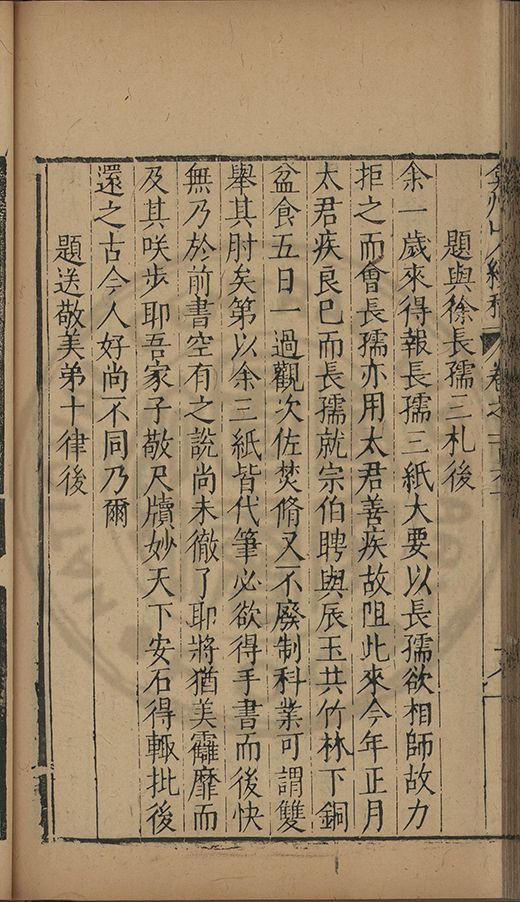 弇州山人續稿 卷之一百六
題與徐長孺三札後
余一歲來得報長孺三紙大要以長孺欲相師故力
拒之而會長孺亦用太君善疾故阻此來今年正月
太君疾良巳而長孺就宗伯聘與辰玉共竹林下銅
盆食五日一過觀次佐焚脩又不廢制科業可謂雙
舉其肘矣第以余三紙皆代筆必欲得手書而後快
無乃於前書空有之說尚未徹了耶將猶美靡而
及其咲步耶吾家子敬尺牘妙天下安石得輙批後
還之古今人好尚不同乃爾
題送敬美弟十律後